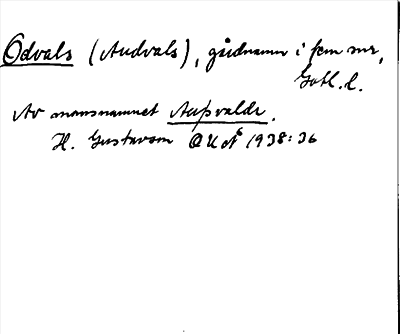 Odvals (Audvals), gårdnamn i fem snr,
Gotl. l.
Av mansnamnet Auþvaldr.
H. Gustavson OUÅ 1938:36